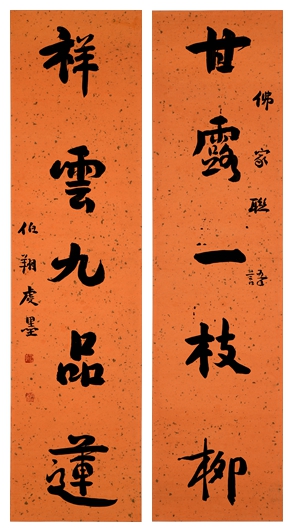 甘露一枝柳
佛家聯語
祥雲九品蓮
伯翔虔墨